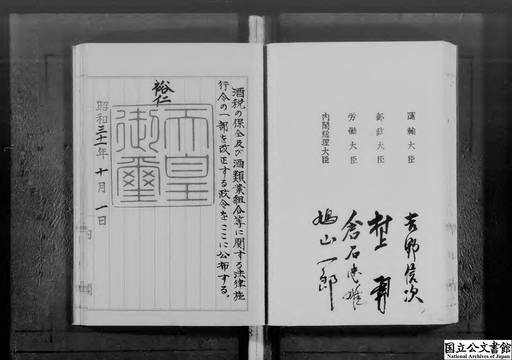 運輸大臣
郵政大臣
労働大臣
内閣総理大臣
吉野信次
村上勇
倉石忠雄
鳩山一郎
酒税の保全及び酒類業組合等に関する法律施
行令の一部を改正する政令をここに公布する。
裕仁
天皇
御璽
昭和三十一年十月一日
国立公文書館
National Archives of Japan